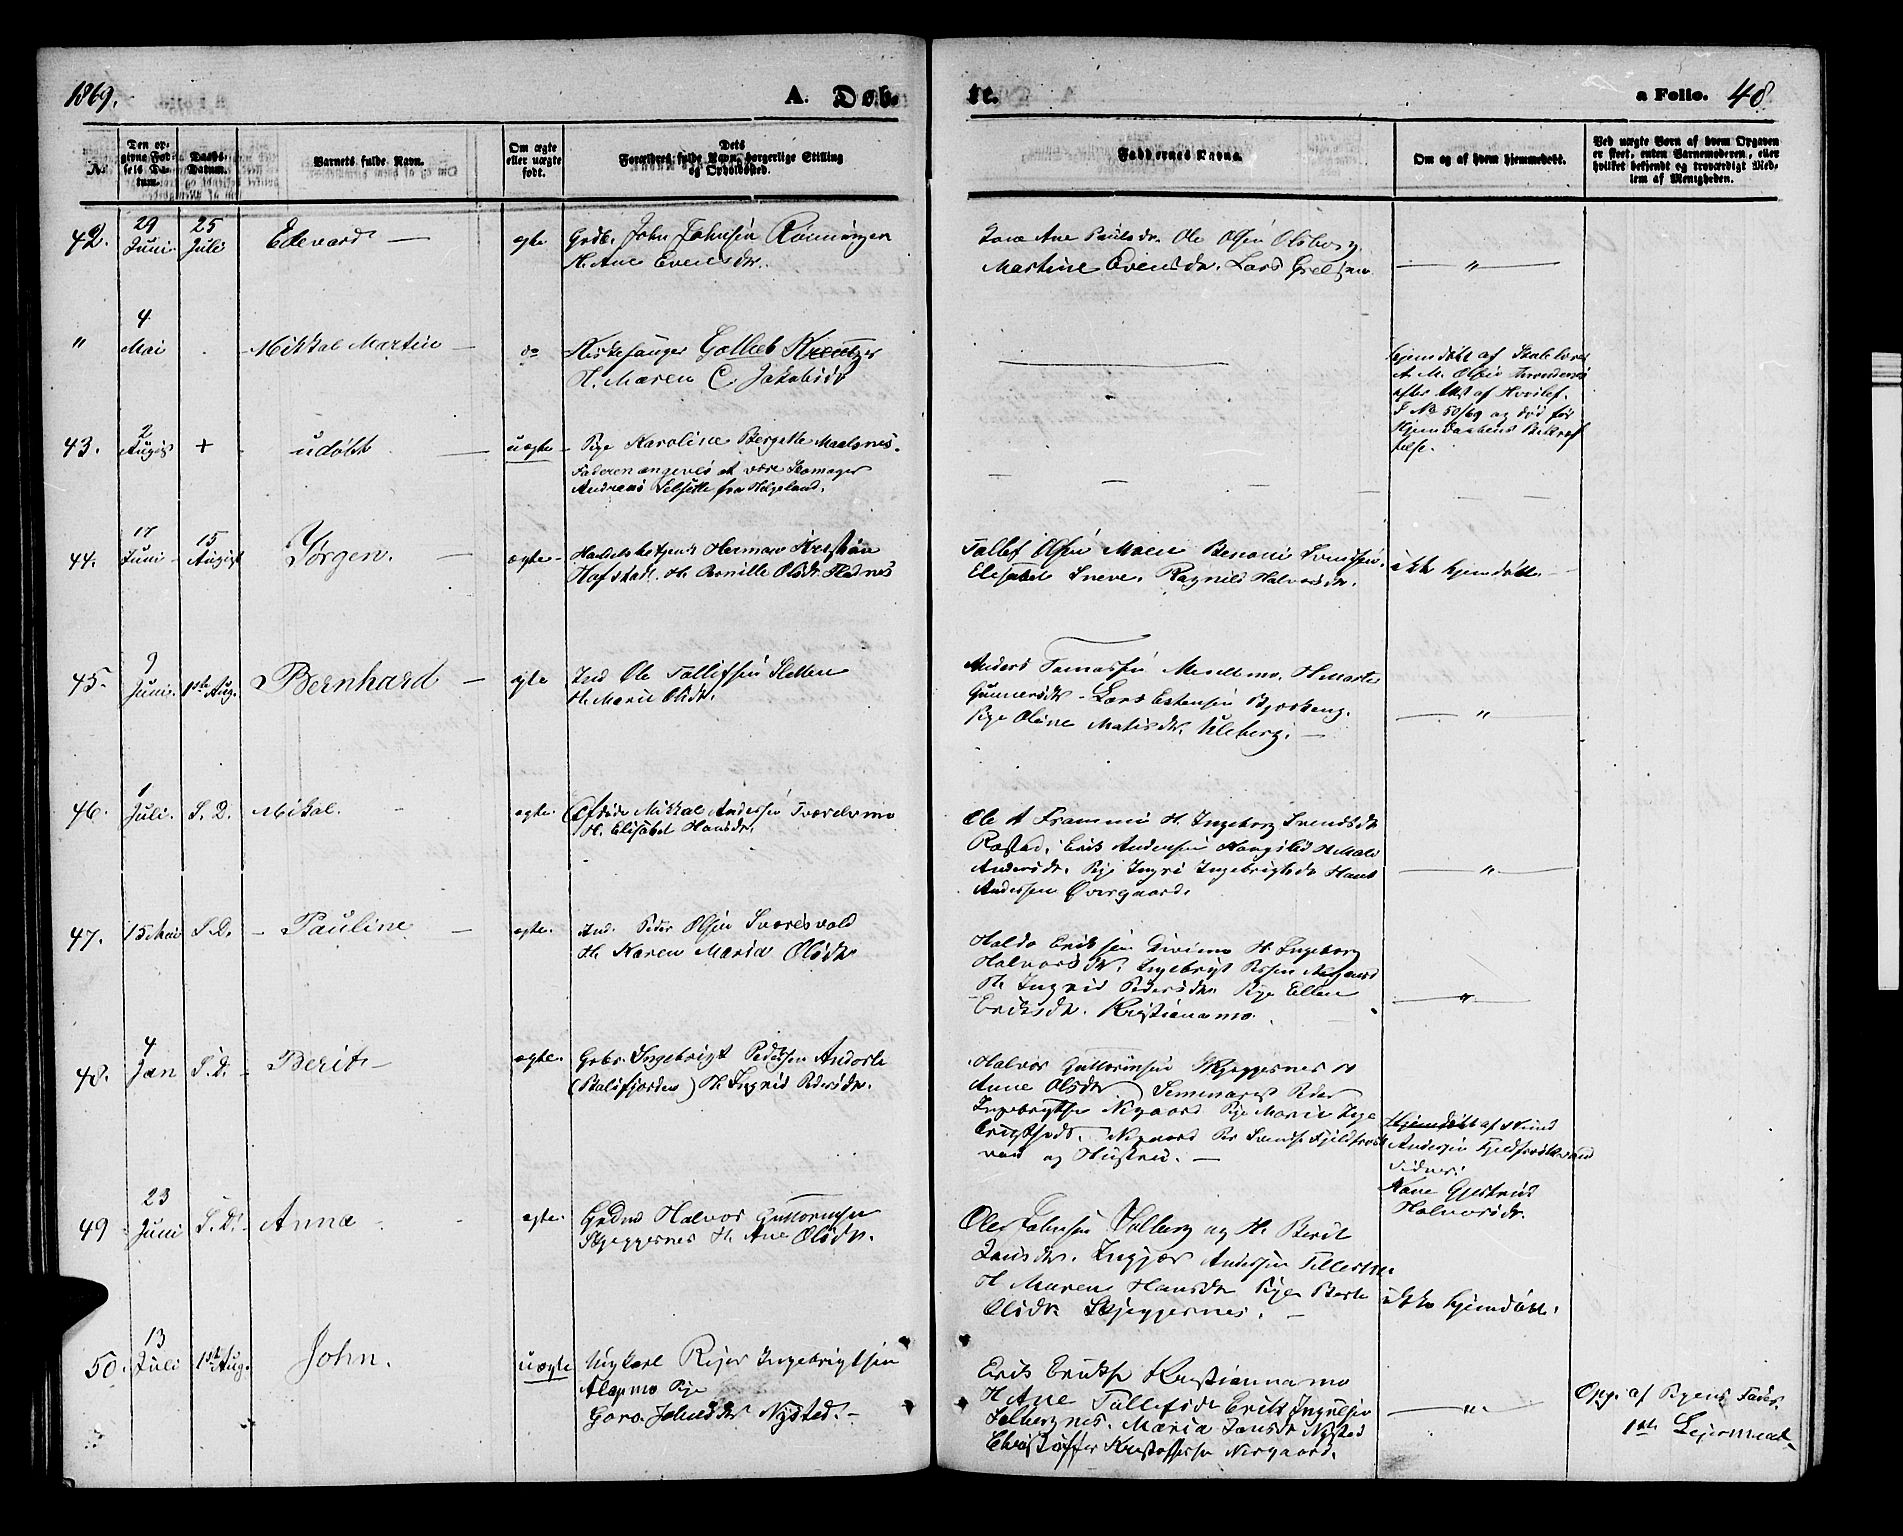 1869.
A. Døb-
te.
a Folio. 48.
No.
Den opgivne Fødsels Datum.
Daabs-Datum.
Barnets fulde Navn.
Om ægte eller uægte født.
Dets Forældres fulde Navn, borgerlige Stilling og Opholdssted.
Faddernes Navne.
Om og af hvem hjemmedøbt.
Ved uægte Børn af hvem Opgaven er skeet, enten Barnemoderen, eller hvilket bekjendt og troværdigt Medlem af Menigheden.
42. 29 Juni 25 Juli Edevard — egte
Grdb. John Johnsen Rönningen
H. Ane Evensdr.
Jane Ane Paulsdr. Ole Olsen Olsborg
Martine Evensdr. Lars
— " —
" 4 Mai Mikkal Martin — do
Kirkesanger Gotlieb Kreutzer
H. Maren C. Jakobsdr
Hjemdøbt af Skolelærer
A. M. Olsen
efter Att. af
I No 50/69 og død før
Hjemdaabens Bekræf
telse.
43. 2 August + udøbt — uægte
Pige Karoline Bergitte Maalsnes.
Faderen angives at være Skomager
Andreas Selsette fra Helgeland.
44. 17 Juni 15 August Jörgen. — ægte
Handelsbetjent Herman Kristian
Hofstad. H. Pernille Olsdr.
Tollef Olsen Moen Benoni Svendsen.
Elisabet Sneve. Ragnild Halvorsdr.
ikke hjemdøbt —
45. 9 Juni 1ste Aug. Bernhard — egte
Ind Ole Tollefsen Sletten
H. Marie Olsdr.
Anders Tomassen Moen H. Marte
Gunnersdr. Lars Estensen Bjerkeng.
Pige Oline Matisdr. Uleberg. —
— " —
46. 1 Juli. S. D. Mikal. egte.
Afdøde Mikkal Andersen Tverelvmo
H. Elisabet Hansdr.
Ole A Frammi H. Ingeborg Svendsdr
Rostad. Erik Andersen Haugslid H Mali
Andersdr. Pige Ingri Ingebrigtsdr Hans
Andersen Øvergaard.
— " —
47. 15 Mai S. D. Pauline — egte.
Ind. Peder Olsen
H. Karen Maria Olsdr
Haldo Eriksen Divimo H. Ingeborg
Halvorsdr. Ingebrigt Persen Nygaard
H. Ingrid Pedersdr. Pige Ellen
Eriksdr. Kristianamo.
— " —
48. 4 Jan S. D. Berit — egte.
Grbr. Ingebrigt Pedersen Andorle
(Balsfjorden) H. Ingrid Pedersdr.
Halvor Guttormsen Skjeggesnes H
Anne Olsdr Seminarist Peder
Ingebrigtsen Nygaard Pige Marie Inge
brigtsdr. Nygaard Per Svends. Fjeldfros
vand og Hustru. —
Hjemdøbt af
Andersen Fjeldfrosvand
Fadere:
Kone Gjertrud
Halvorsdr.
49 23 Juni S. D. Anna egte.
Grdmd Halvor Guttormsen
Skjeggesnes H. Ane Olsdr.
Ole Johnsen Solberg og H. Berit
Jonsdr. Ingjær Andersen
H Maren Hansdr Pige Berte
Olsdr Skjeggesnes. —
ikke hjemdøbt.
50. 13 Juli 1ste Aug. John. uægte
Ungkarl Rejer Ingebrigtsen
Alapmo Pige
Goro Johnsdr Nysted. —
Erik Eriks. Kristianamo
H Ane Tollefsdr Erik Ingulsen
Solbergnes. Maria Jonsdr Nysted
Christoffer Kristoffersen Nergaard.
— " —
Opg. af Pigens Fader.
1ste Leiermaal.